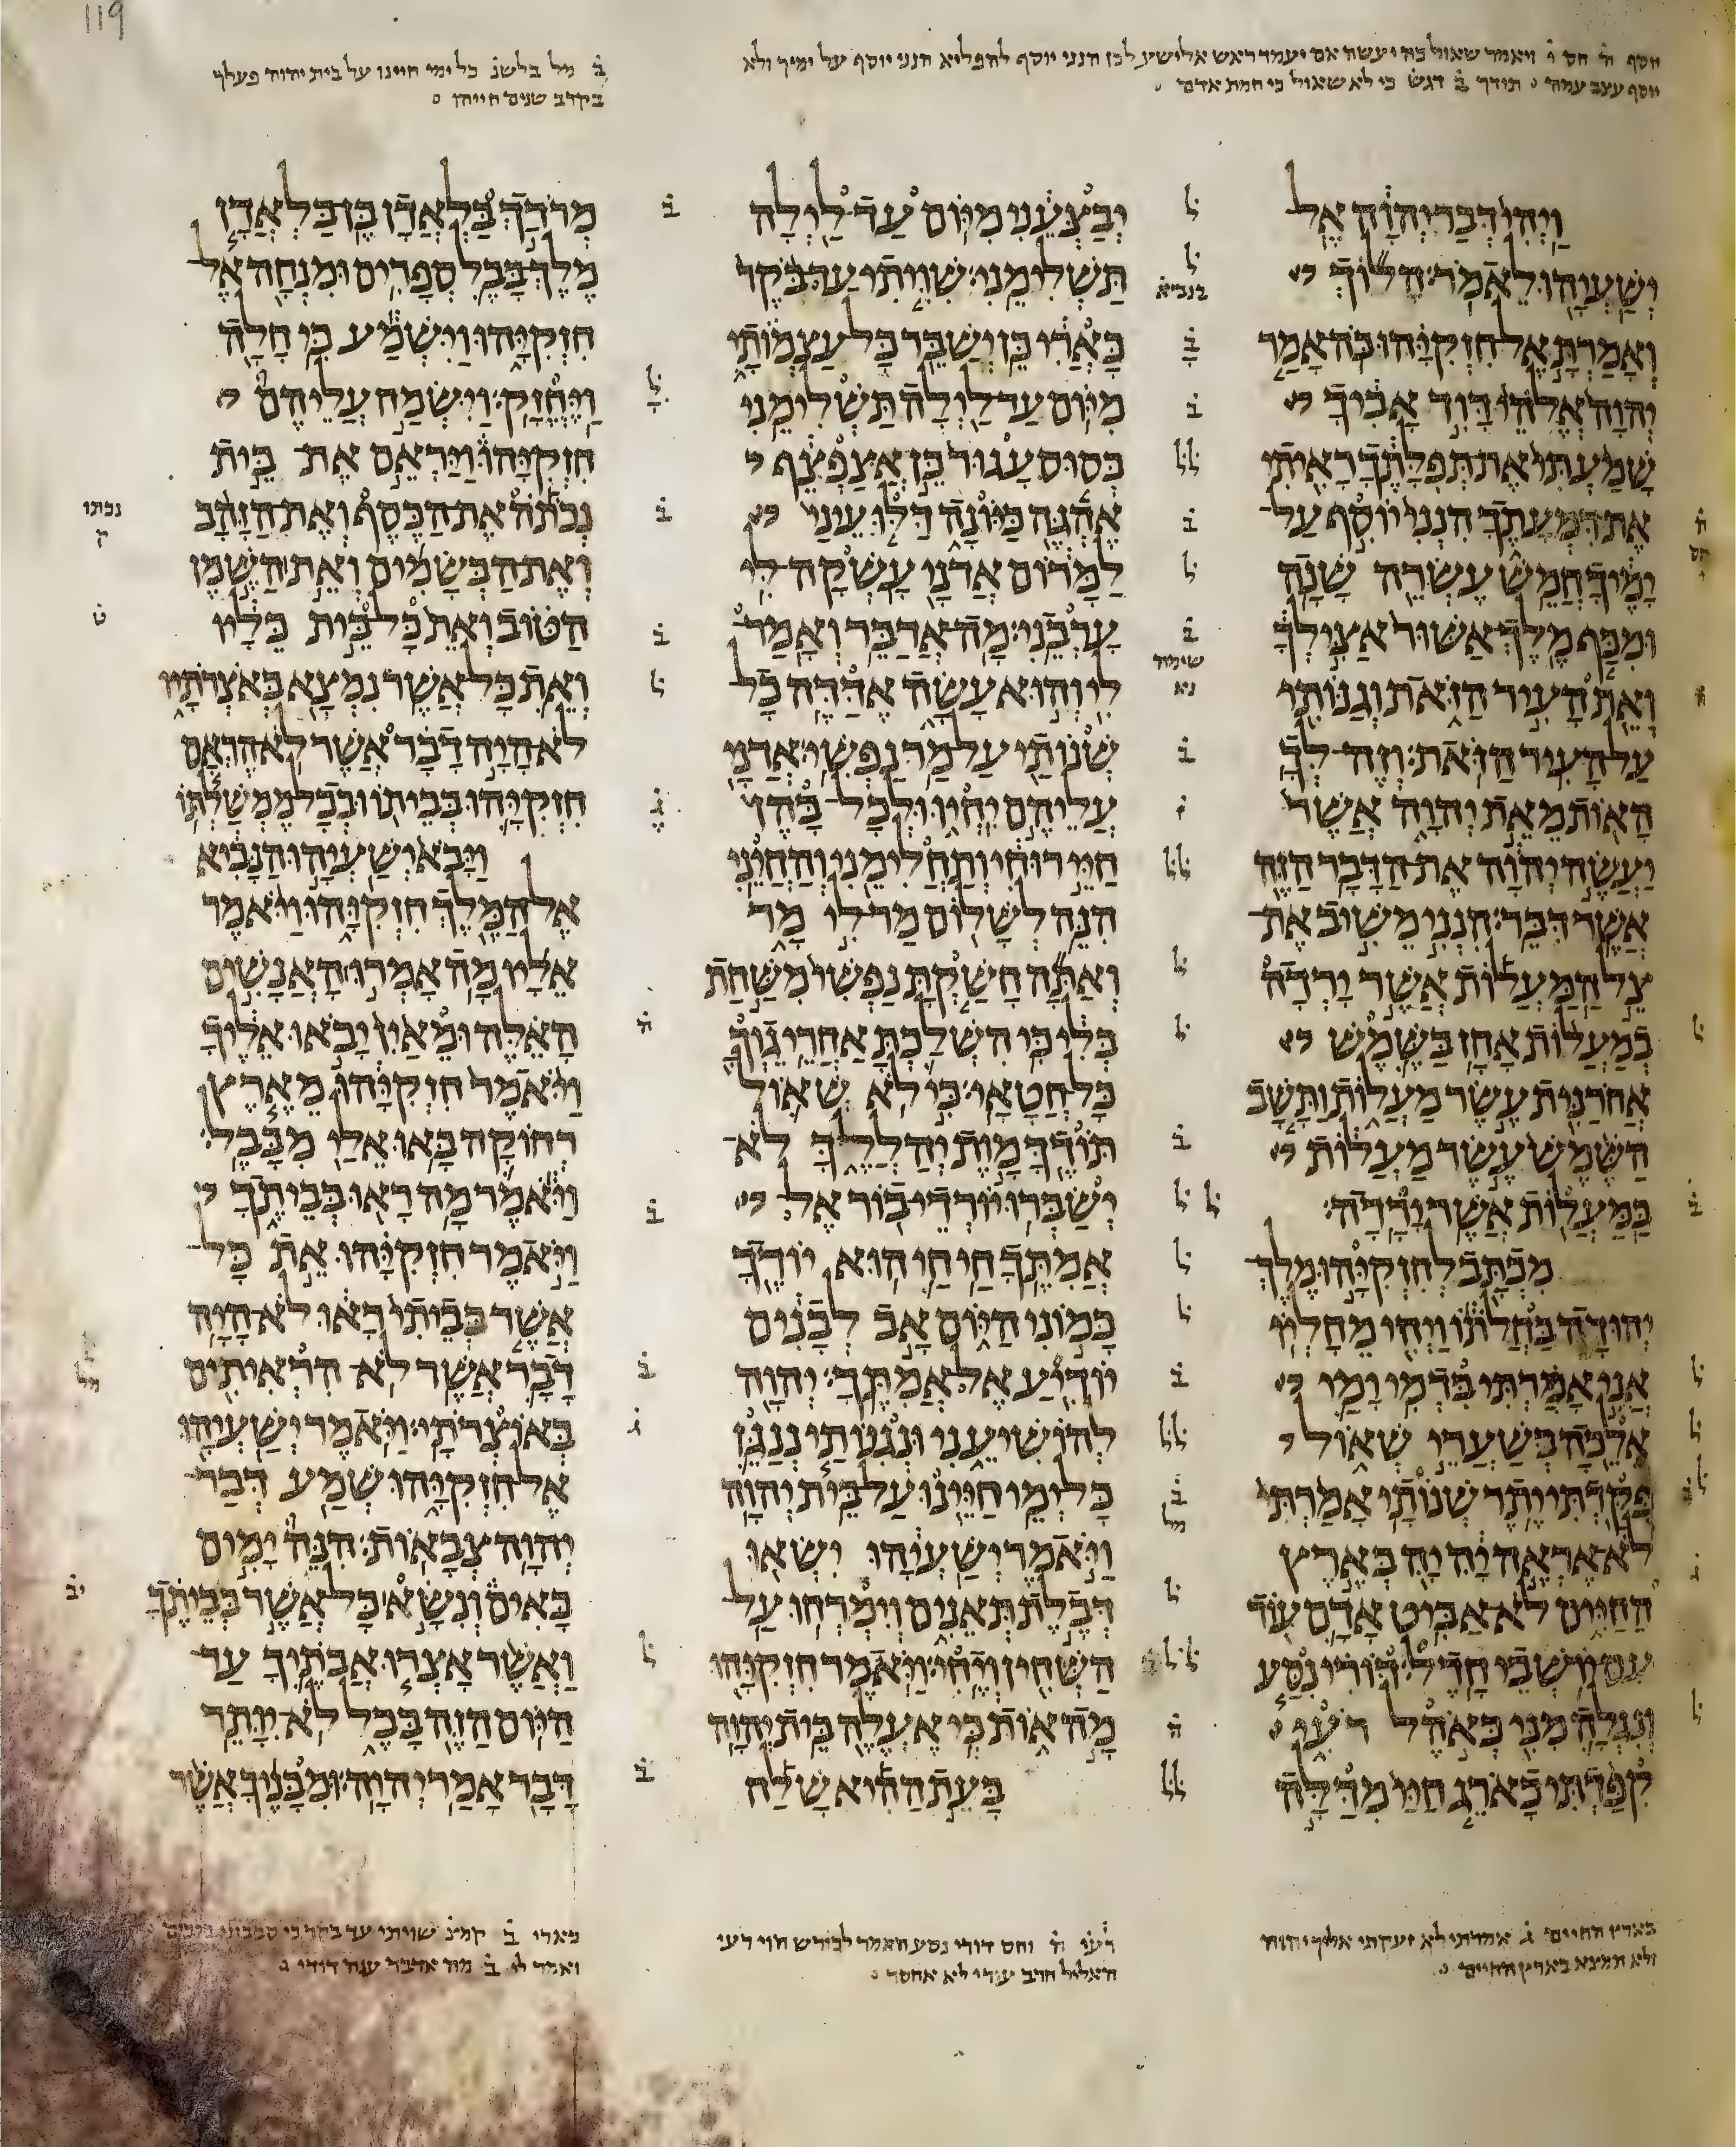 119
יוסף ה̇ חס י̇ ויאמר שאול כה יעשה אם יעמד ראש אלישע לכן הנני יוסף להפליא הנני יוסף על ימיך ולא
יוסף עצב עמה ׃ תודך ב̇ דגש כי לא שאול כי חמת אדם ׃
ב̇ מל בלשנ̇ כל ימי חיינו על בית יהוה פעלך
בקרב שנים חייהו ׃
וַיְהִי דְּבַר יְהוָה אֶל
יְשַׁעְיָהוּ לֵאמֹר׃ הָלוֹךְ
וְאָמַרְתָּ אֶל חִזְקִיָּהוּ כֹּה אָמַר
יְהוָה אֱלֹהֵי דָּוִד אָבִיךָ
שָׁמַעְתִּי אֶת תְּפִלָּתֶךָ רָאִיתִי
אֶת דִּמְעָתֶךָ הִנְנִי יוֹסִף עַל־
יָמֶיךָ חֲמֵשׁ עֶשְׂרֵה שָׁנָה׃
וּמִכַּף מֶלֶךְ אַשּׁוּר אַצִּילְךָ
וְאֵת הָעִיר הַזֹּאת וְגַנּוֹתִי
עַל הָעִיר הַזֹּאת׃ וְזֶה לְּךָ
הָאוֹת מֵאֵת יְהוָה אֲשֶׁר
יַעֲשֶׂה יְהוָה אֶת־הַדָּבָר הַזֶּה
אֲשֶׁר דִּבֵּר׃ הִנְנִי מֵשִׁיב אֶת־
צֵל הַמַּעֲלוֹת אֲשֶׁר יָרְדָה
בְמַעֲלוֹת אָחָז בַּשֶּׁמֶשׁ
אֲחֹרַנִּית עֶשֶׂר מַעֲלוֹת וַתָּשָׁב
הַשֶּׁמֶשׁ עֶשֶׂר מַעֲלוֹת
בַּמַּעֲלוֹת אֲשֶׁר יָרָדָה׃
מִכְתָּב לְחִזְקִיָּהוּ מֶלֶךְ־
יְהוּדָה בַּחֲלֹתוֹ וַיְחִי מֵחָלְיוֹ׃
אֲנִי אָמַרְתִּי בִּדְמִי יָמַי
אֵלֵכָה בְּשַׁעֲרֵי שְׁאוֹל
פֻּקַּדְתִּי יֶתֶר שְׁנוֹתָי׃ אָמַרְתִּי
לֹא־אֶרְאֶה יָהּ יָהּ בְּאֶרֶץ
הַחַיִּים לֹא־אַבִּיט אָדָם עוֹד
עִם יוֹשְׁבֵי חָדֶל׃ דּוֹרִי נִסַּע
וְנִגְלָה מִנִּי כְּאֹהֶל רֹעִי
קִפַּדְתִּי כָאֹרֵג חַיַּי מִדַּלָּה
יְבַצְּעֵנִי מִיּוֹם עַד־לַיְלָה
תַּשְׁלִימֵנִי׃ שִׁוִּיתִי עַד־בֹּקֶר
כָּאֲרִי כֵּן יְשַׁבֵּר כָּל עַצְמוֹתָי
מִיּוֹם עַד לַיְלָה תַּשְׁלִימֵנִי׃
כְּסוּס עָגוּר כֵּן אֲצַפְצֵף
אֶהְגֶּה כַּיּוֹנָה דַּלּוּ עֵינַי
לַמָּרוֹם אֲדֹנָי עָשְׁקָה־לִּי
עָרְבֵנִי׃ מָה־אֲדַבֵּר וְאָמַר־
לִי וְהוּא עָשָׂה אֶדַּדֶּה כָל
שְׁנוֹתַי עַל מַר נַפְשִׁי׃ אֲדֹנָי
עֲלֵיהֶם יִחְיוּ וּלְכָל־בָּהֶן
חַיֵּי רוּחִי וְתַחֲלִימֵנִי וְהַחֲיֵנִי׃
הִנֵּה לְשָׁלוֹם מַר־לִי מָר
וְאַתָּה חָשַׁקְתָּ נַפְשִׁי מִשַּׁחַת
בְּלִי כִּי הִשְׁלַכְתָּ אַחֲרֵי גֵוְךָ
כָּל־חֲטָאָי׃ כִּי לֹא שְׁאוֹל
תּוֹדֶךָּ מָוֶת יְהַלְלֶךָּ לֹא־
יְשַׂבְּרוּ יוֹרְדֵי בוֹר אֶל
אֲמִתֶּךָ׃ חַי חַי הוּא יוֹדֶךָ
כָּמוֹנִי הַיּוֹם אָב לְבָנִים
יוֹדִיעַ אֶל־אֲמִתֶּךָ׃ יְהוָה
לְהוֹשִׁיעֵנִי וּנְגִנוֹתַי נְנַגֵּן
כָּל־יְמֵי חַיֵּינוּ עַל בֵּית יְהוָה׃
וַיֹּאמֶר יְשַׁעְיָהוּ יִשְׂאוּ
דְּבֶלֶת תְּאֵנִים וְיִמְרְחוּ עַל־
הַשְּׁחִין וְיֶחִי׃ וַיֹּאמֶר חִזְקִיָּהוּ
מָה אוֹת כִּי אֶעֱלֶה בֵּית יְהוָה׃
בָּעֵת הַהִיא שָׁלַח
מְרֹדַךְ בַּלְאֲדָן בֶּן בַּלְאֲדָן
מֶלֶךְ־בָּבֶל סְפָרִים וּמִנְחָה אֶל־
חִזְקִיָּהוּ וַיִּשְׁמַע כִּי חָלָה
וַיֶּחֱזָק׃ וַיִּשְׂמַח עֲלֵיהֶם
חִזְקִיָּהוּ וַיַּרְאֵם אֶת־בֵּית
נְכֹתֹה אֶת הַכֶּסֶף וְאֶת הַזָּהָב
וְאֶת הַבְּשָׂמִים וְאֵת הַשֶּׁמֶן
הַטּוֹב וְאֵת כָּל בֵּית כֵּלָיו
וְאֵת כָּל אֲשֶׁר נִמְצָא בְּאֹצְרֹתָיו
לֹא הָיָה דָבָר אֲשֶׁר לֹא הֶרְאָם
חִזְקִיָּהוּ בְּבֵיתוֹ וּבְכָל מֶמְשַׁלְתּוֹ׃
וַיָּבֹא יְשַׁעְיָהוּ הַנָּבִיא
אֶל הַמֶּלֶךְ חִזְקִיָּהוּ וַיֹּאמֶר
אֵלָיו מָה אָמְרוּ הָאֲנָשִׁים
הָאֵלֶּה וּמֵאַיִן יָבֹאוּ אֵלֶיךָ
וַיֹּאמֶר חִזְקִיָּהוּ מֵאֶרֶץ
רְחוֹקָה בָּאוּ אֵלַי מִבָּבֶל׃
וַיֹּאמֶר מָה רָאוּ בְּבֵיתֶךָ
וַיֹּאמֶר חִזְקִיָּהוּ אֵת כָּל־
אֲשֶׁר בְּבֵיתִי רָאוּ לֹא־הָיָה
דָבָר אֲשֶׁר לֹא־הִרְאִיתִים
בְּאוֹצְרֹתָי׃ וַיֹּאמֶר יְשַׁעְיָהוּ
אֶל־חִזְקִיָּהוּ שְׁמַע דְּבַר־
יְהוָה צְבָאוֹת׃ הִנֵּה יָמִים
בָּאִים וְנִשָּׂא׀ כָּל־אֲשֶׁר בְּבֵיתֶךָ
וַאֲשֶׁר אָצְרוּ אֲבֹתֶיךָ עַד־
הַיּוֹם הַזֶּה בָּבֶל לֹא־יִוָּתֵר
דָּבָר אָמַר יְהוָה׃ וּמִבָּנֶיךָ אֲשֶׁר
בנביא
שיטה
נא
נכתו
ק
בארץ החיים ג̇ אמרתי לא זעקתי אליך יהוה
ולא תמצא בארץ החיים ׃
רעי ה̇ וחס דורי נסע האמר לכורש הוי רעי
האליל חרב עורי לא אחסר ׃
כארי ב̇ קמצ̇ שויתי עד בקר כי סבבוני כלבים
ואמר לי ב̇ מה אדבר ענה דודי ׃